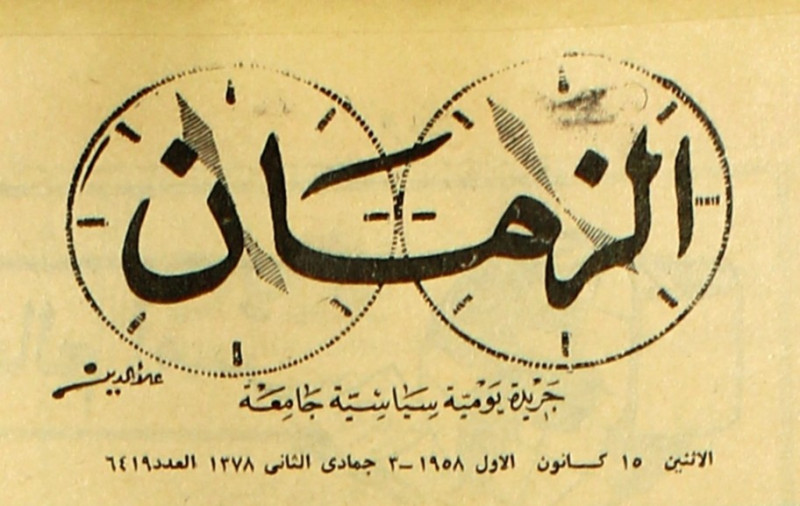 الزمان
علاء الدين
جريدة يومية سياسية جامعة
الاثنين ١٥ كانون الاول ١٩٥٨ــ٣ جمادى الثانى ١٣٧٨ العدد٦٤١٩